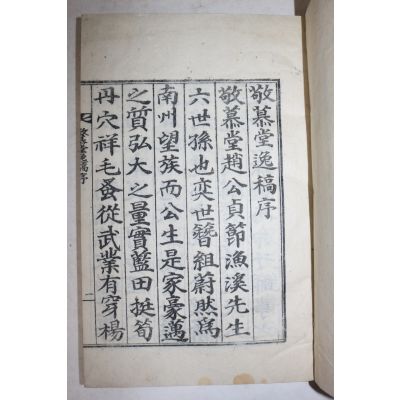 敬慕堂逸稿序
敬慕堂趙公貞節漁溪先生
六世孫也奕世簪組蔚然爲
南州望族而公生是家豪邁
之質弘大之量實藍田挺筍
丹穴祥毛蚤從武業有穿楊
敬慕堂逸稿序
二